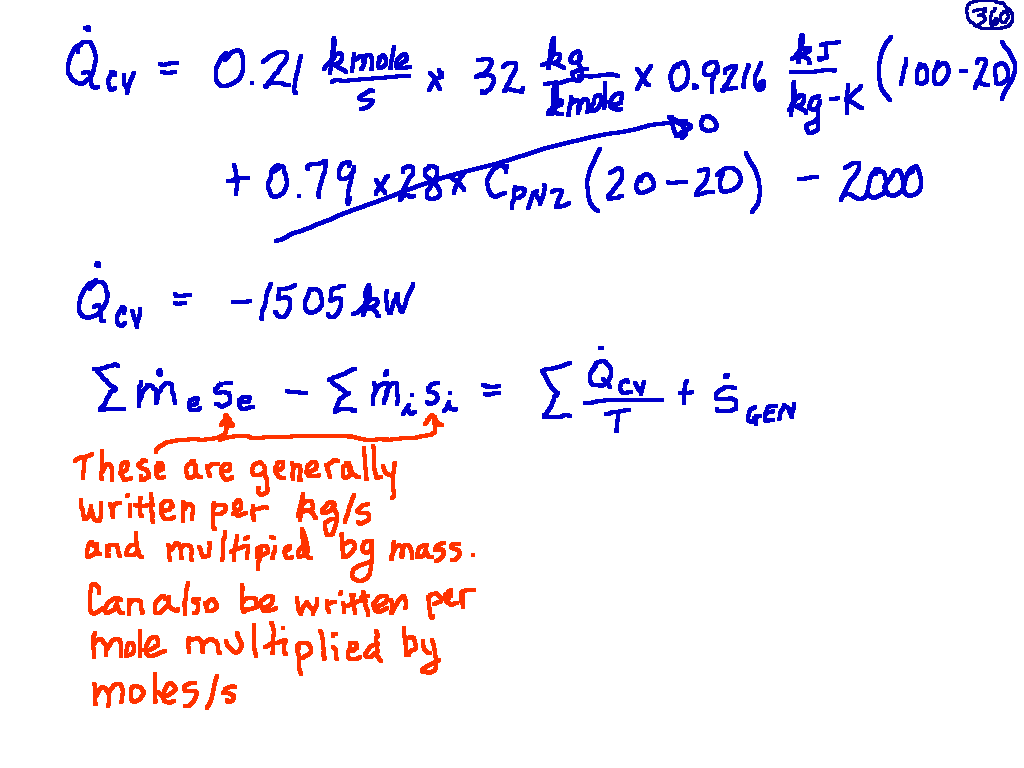 360
Q̇cv = 0.21 kmole/s * 32 kg/kmole x 0.9216 kJ/kg-K (100-20)
+ 0.79 x 28 x CPN2 (20-20) - 2000
0
Q̇cv = -1505 kW
Σ ṁe se - Σ ṁi si = Σ Q̇cv/T + ṠGEN
These are generally
written per kg/s
and multipied bg mass.
Can also be written per
mole multiplied by
moles/s